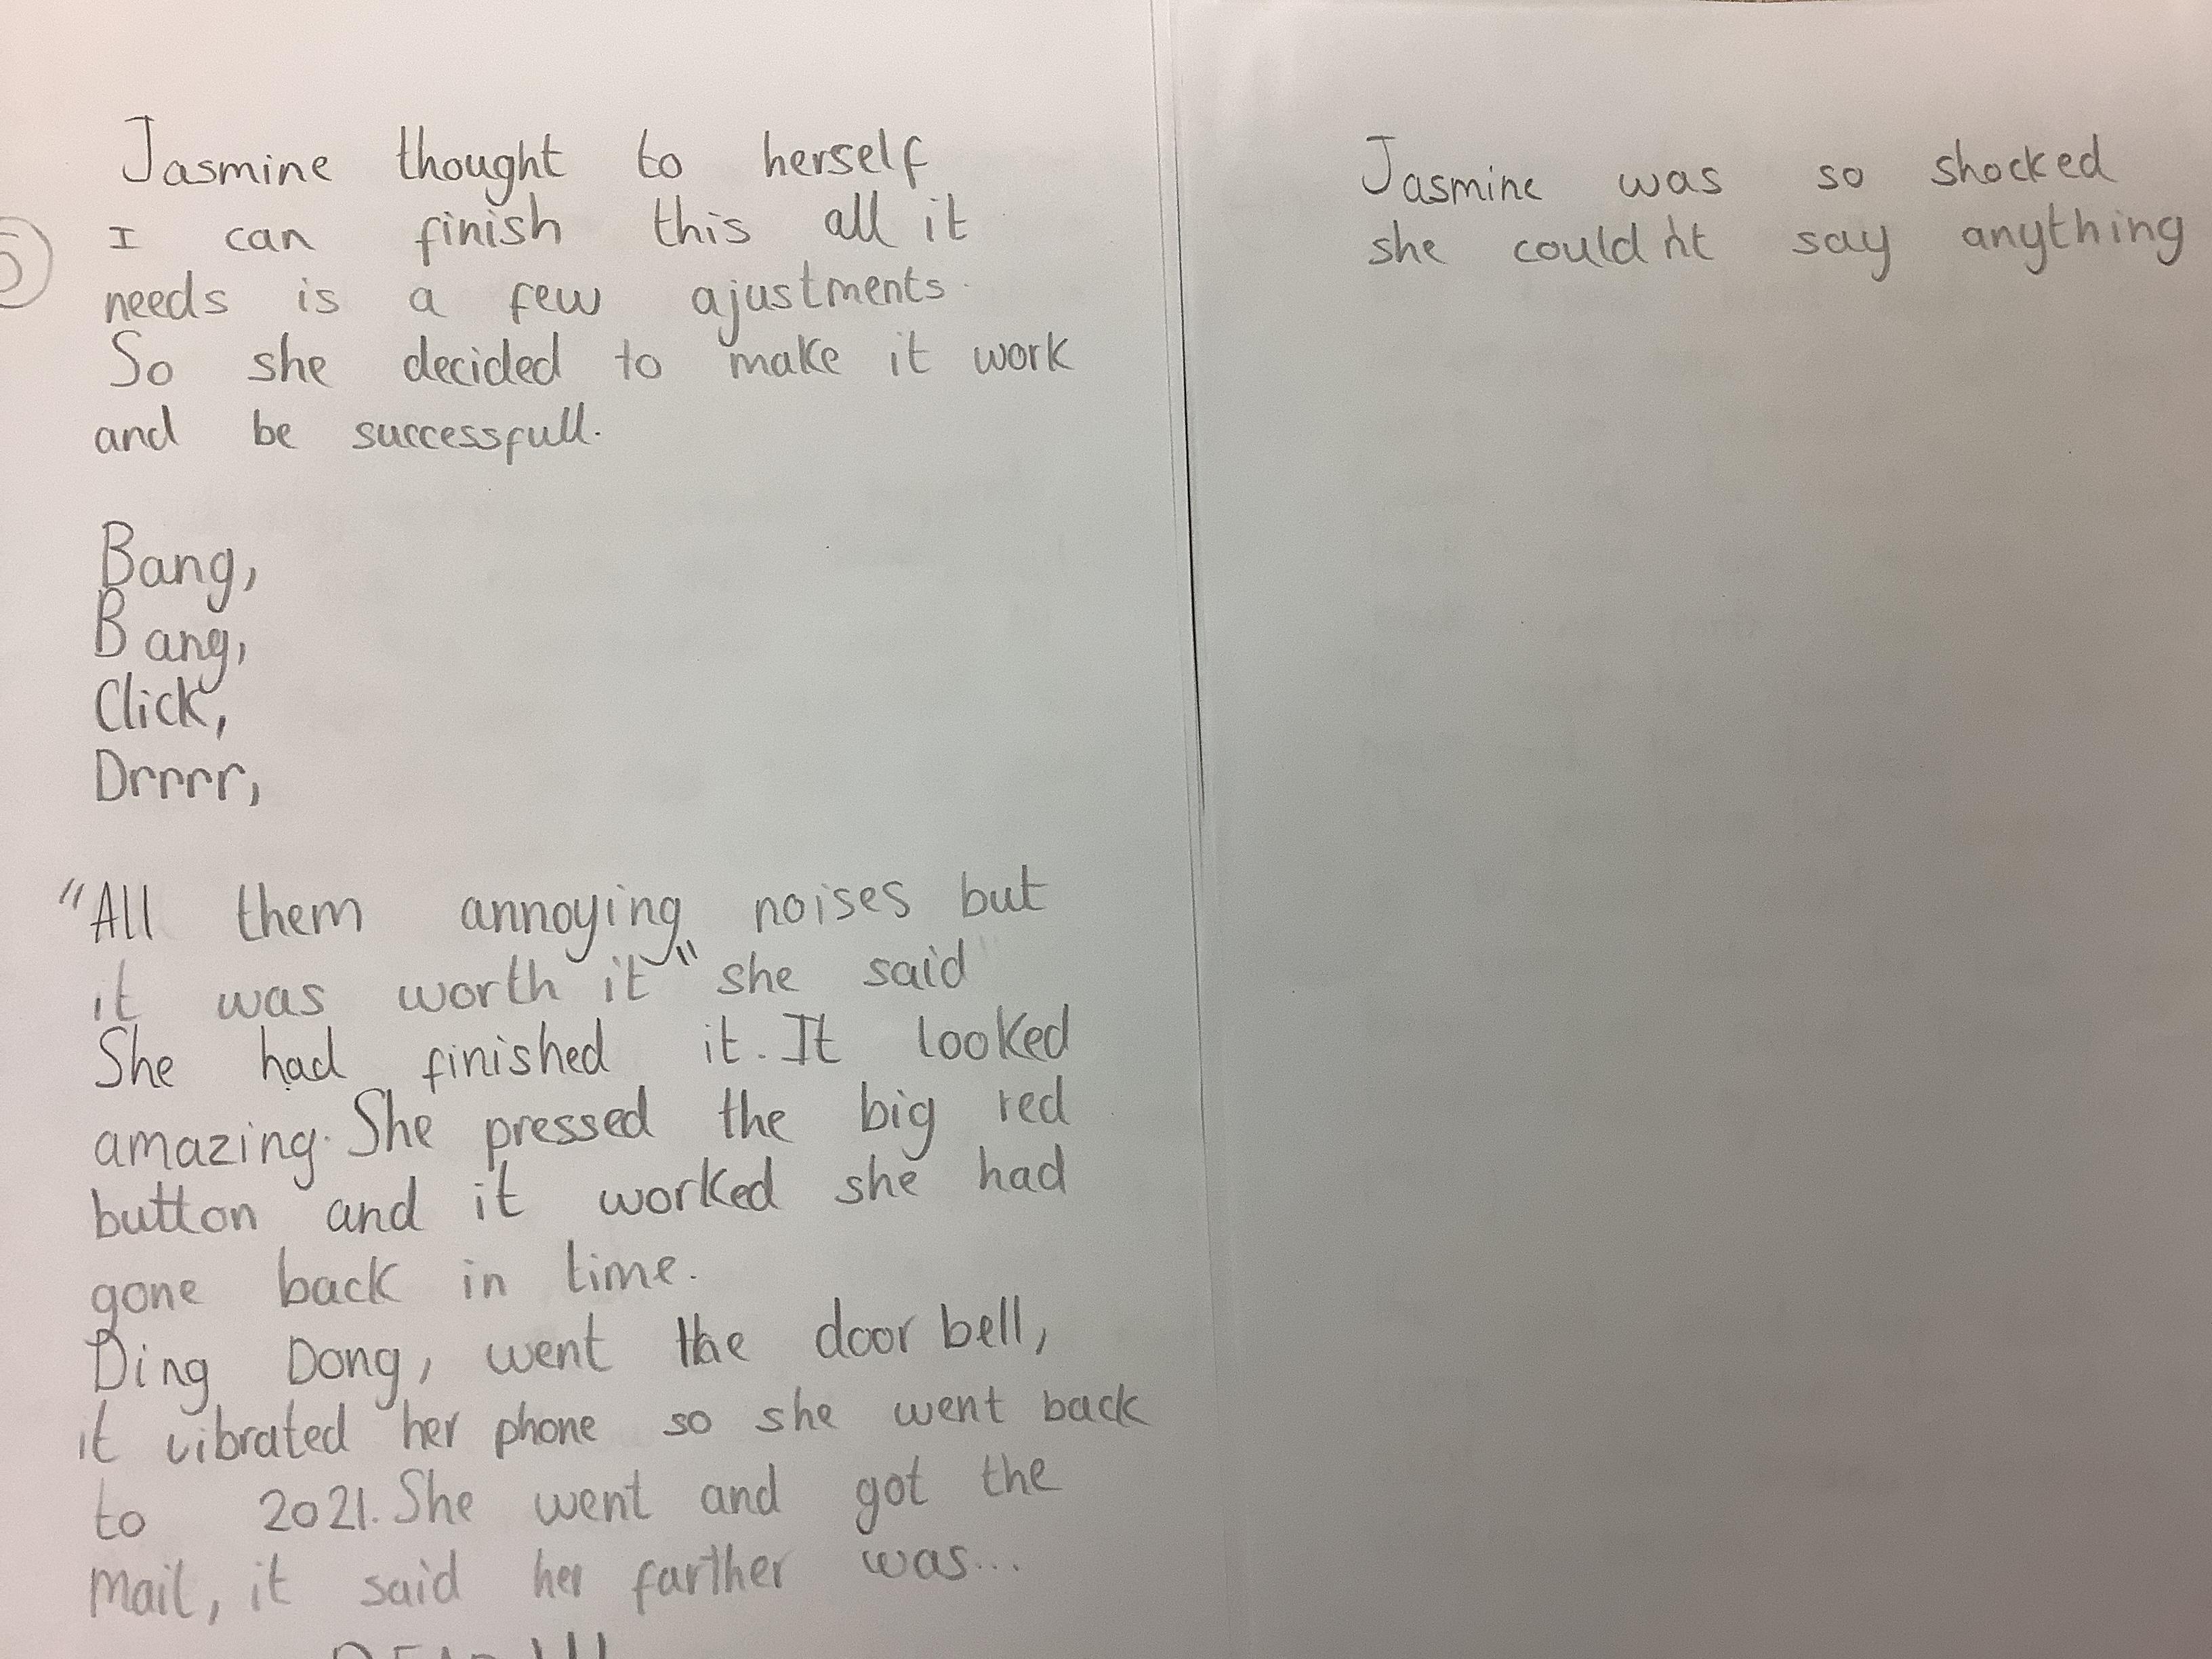 Jasmine thought to herself
I can finish this all it
needs is a few ajustments.
So she decided to make it work
and be successfull.
Bang,
Bang,
Click,
Drrrr,
"All them annoying noises but
it was worth it" she said
She had finished it. It looked
amazing. She pressed the big red
button and it worked she had
gone back in time.
Ding Dong, went the door bell,
it vibrated her phone so she went back
to 2021. She went and got the
Mail, it said her farther was...
DEAD!!!
Jasmine was so shocked
she could'nt say anything